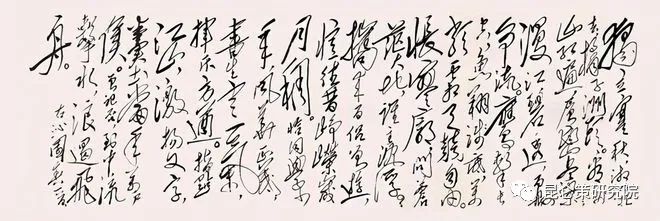 独立寒秋湘江北
去橘子洲头看万
山红遍层林尽
漫江碧透百舸
争流鹰击长空
鱼翔浅底万
类霜天竞自由
怅寥廓问苍
茫大地谁主沉浮
携来百侣曾游
忆往昔峥嵘岁
月稠恰同学少
年风华正茂
书生意气
挥斥方遒指点
江山激扬文字
粪土当年万户
侯曾记否到中流
击水浪遏飞
舟
右沁园春
昆仑策研究院